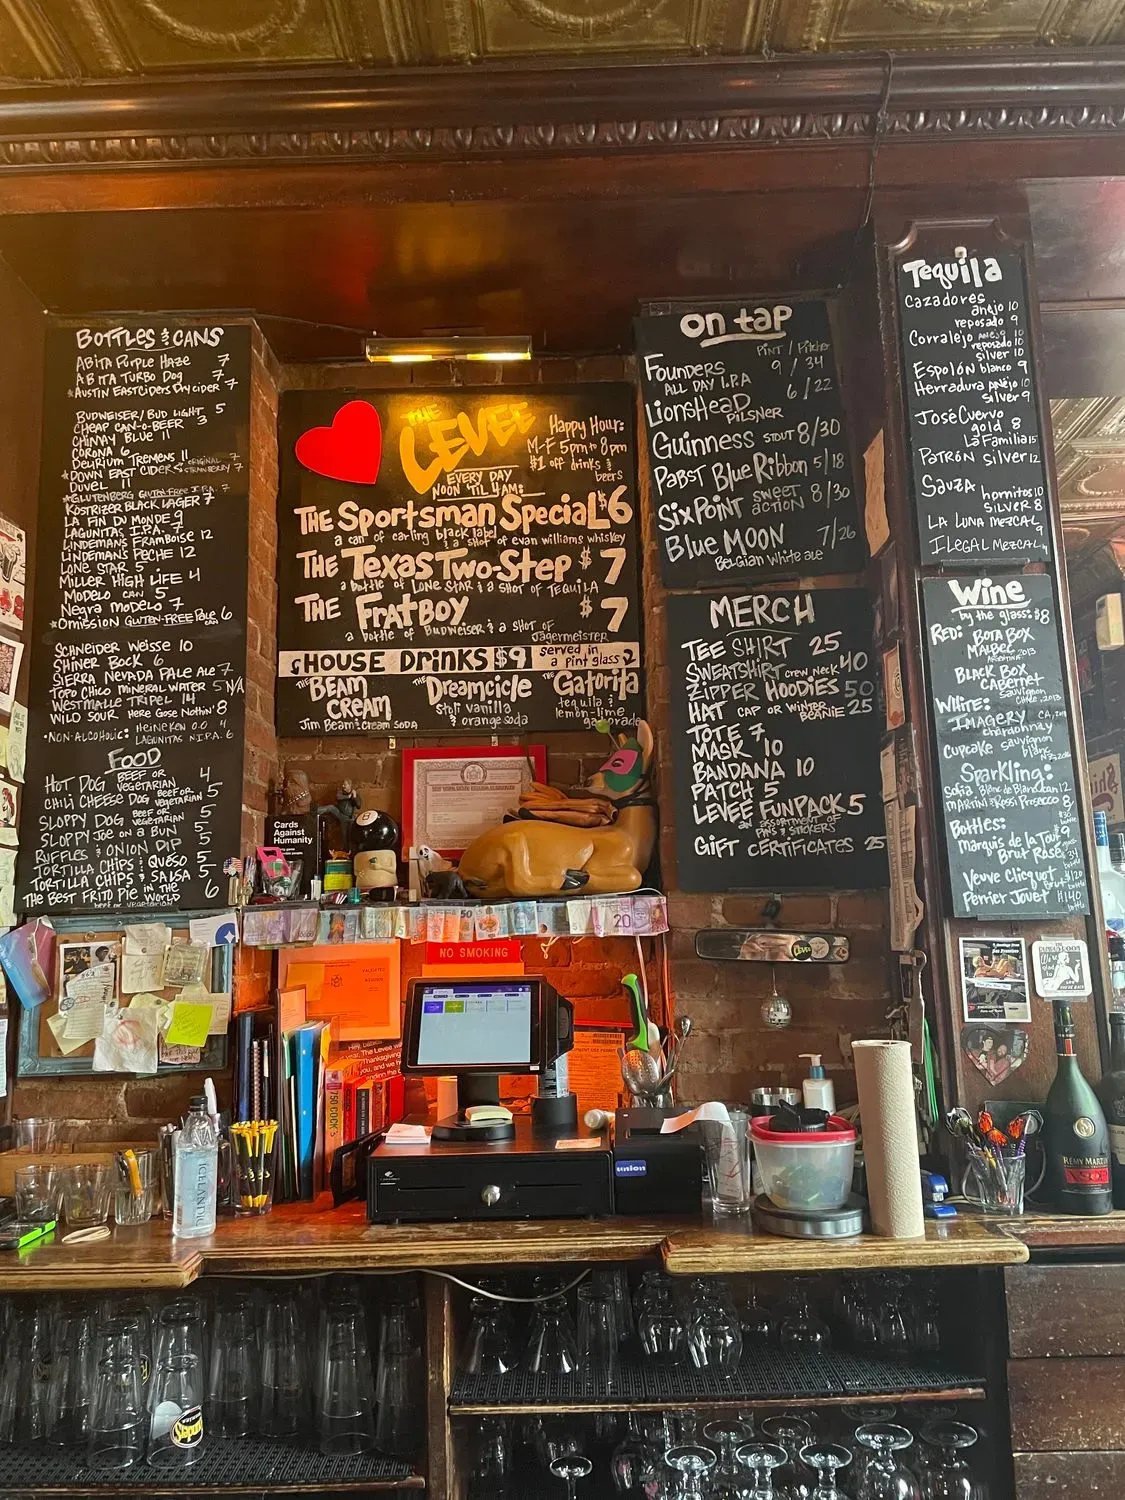 BOTTLES & CANS
ABITA PURPLE HAZE 7
ABITA TURBO DOG 7
*AUSTIN EASTCIDERS DRY CIDER 7
BUDWEISER/BUD LIGHT 5
CHEAP CAN-O-BEER 3
CHIMAY BLUE 11
CORONA 6
DELIRIUM TREMENS 11
*DOWN EAST CIDER ORIGINAL 7
STRAWBERRY 7
DUVEL 11
*GLUTENBERG GLUTEN-FREE I.P.A. 7
KOSTRIZER BLACK LAGER 7
LA FIN DU MONDE 9
LAGUNITAS IPA 7
LINDEMANS FRAMBOISE 12
LINDEMAN'S PECHE 12
LONE STAR 5
MILLER HIGH LIFE 4
MODELO CAN 5
NEGRA MODELO 7
*OMISSION GLUTEN-FREE PALE CAN 6
SCHNEIDER WEISSE 10
SHINER BOCK 6
SIERRA NEVADA PALE ALE 7
TOPO CHICO MINERAL WATER 5 N/A
WESTMALLE TRIPEL 14
WILD SOUR HERE GOSE NOTHIN' 8
*NON-ALCOHOLIC: HEINEKEN 0.0 4
LAGUNITAS N.I.P.A. 6
FOOD
HOT DOG BEEF OR VEGETARIAN 4
CHILI CHEESE DOG BEEF OR VEGETARIAN 5
SLOPPY DOG BEEF OR VEGETARIAN 5
SLOPPY JOE ON A BUN 5
RUFFLES & ONION DIP 5
TORTILLA CHIPS & QUESO 5
TORTILLA CHIPS & SALSA 5
THE BEST FRITO PIE IN THE WORLD 6
beef or vegetarian
THE LEVEE
Happy Hour:
M-F 5pm to 8pm
$1 off drinks & beers
EVERY DAY
NOON 'TIL 4AM:
THE Sportsman Special $6
a can of carling black label & a shot of evan williams whiskey
THE Texas Two-Step $7
a bottle of LONE STAR & a SHOT of TEQUILA
THE FRATBOY $7
a bottle of BUDWEISER & a SHOT OF Jägermeister
HOUSE DRINKS $9 served in a pint glass
THE BEAM CREAM
Jim Beam & cream SODA
THE Dreamcicle
Stoli vanilla & orange soda
THE Gatorita
tequila & lemon-lime gatorade
ON TAP
PINT / Pitcher
FOUNDERS 9 / 34
ALL DAY I.P.A
LIONSHEAD PILSNER 6/22
GUINNESS STOUT 8/30
PABST BLUE RIBBON 5/18
SIXPOINT SWEET ACTION 8/30
BLUE MOON 7/26
BELGIAN White ale
MERCH
TEE SHIRT 25
SWEATSHIRT CREW NECK 40
ZIPPER HOODIES 50
HAT CAP OR WINTER BEANIE 25
TOTE 7
MASK 10
BANDANA 10
PATCH 5
LEVEE FUNPACK 5
an ASSORTMENT OF PINS & STICKERS
GIFT CERTIFICATES 25
Tequila
CAZADORES
añejo 10
reposado 9
CORRALEJO AÑEJO 10
reposado 10
silver 10
ESPOLÓN blanco 9
HERRADURA añejo 10
silver 9
JOSÉ CUERVO
gold 8
La Familia 15
PATRÓN silver 12
SAUZA
hornitos 10
SILVER 8
LA LUNA MEZCAL 9
ILEGAL MEZCAL 9
Wine
by the glass: $8
RED: BOTA BOX
MALBEC
ARGENTINA 2013
BLACK BOX
CABERNET
Sauvignon
CHILE, 2013
WHITE:
IMAGERY CA,
chardonnay
CUPCAKE sauvignon blanc
Sparkling:
Sofia Blanc de Blanc/can 12
MARTINI & ROSSI PROSECCO 8
Bottles:
Marquis de la Tour
Brut Rosé
Veuve Clicquot
Brut $120 bottle
Perrier Jouet $140 bottle
Cards
Against
Humanity
NO SMOKING
20
50
union
ICELANDIC
RÉMY MARTIN
V.S.O.P